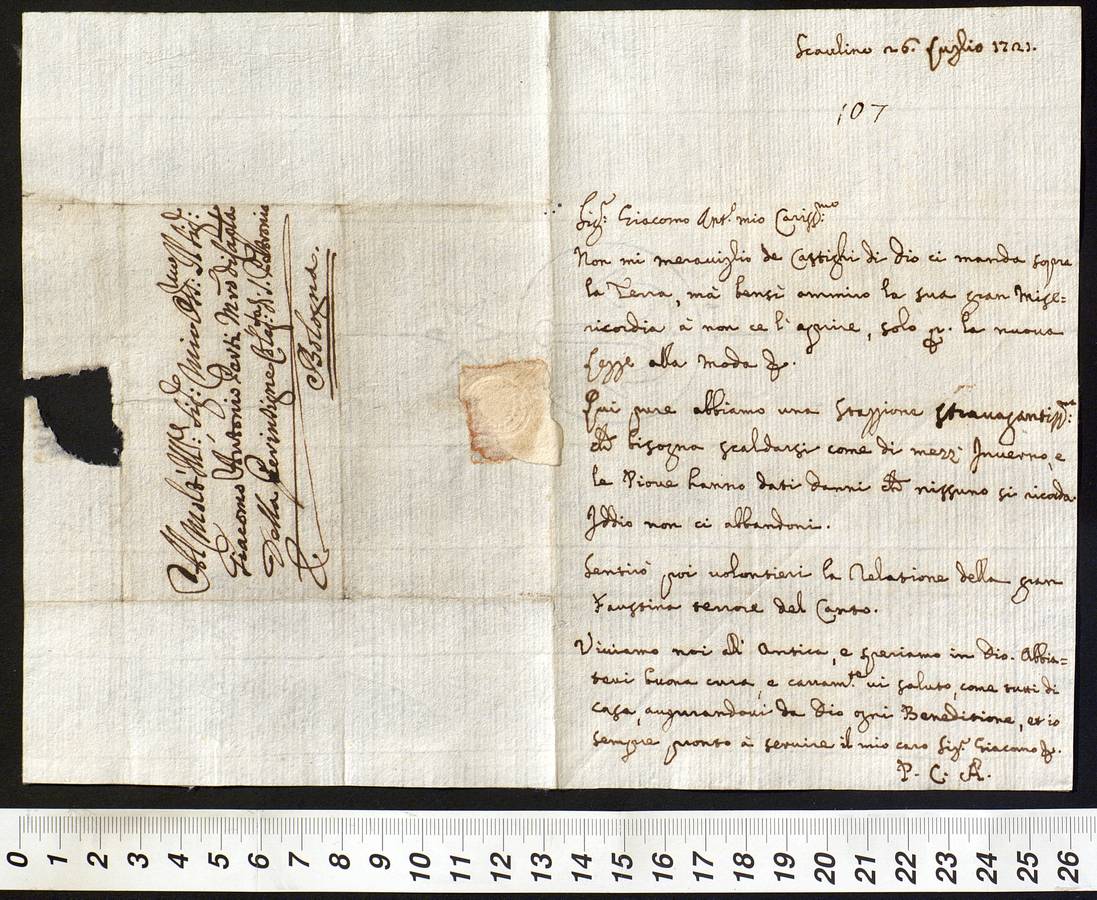 Scaulino 26. Luglio 1721.
107
Sig.r Giacomo Ant.o mio Cariss.mo
Non mi meraviglio de Castighi di Dio ci manda sopra
la Terra, mà bensì ammiro la sua gran Mise=
ricordia à non ce li aprire, solo p. la nuova
legge alla moda &c.
Qui pure abbiamo una staggione stravagantiss.ma
che bisogna scaldarsi come di mezz' Inverno, e
le Piove hanno dati danni che nissuno si ricorda.
Iddio non ci abbandoni.
Sentirò poi volontieri la Relatione della gran
Faustina terrore del Canto.
Viviamo noi all' Antica, e speriamo in Dio. Abbia=
tevi buona cura, e caram.te vi saluto, come tutti di
casa, augurandovi da Dio ogni Beneditione, et io
sempre pronto à servire il mio caro Sig.r Giacomo &c.
P. C. A.
Al Molt' Ill.re Sig.re Sig.r mio Oss.mo Il Sig.r
Giacomo Antonio Perti Mro di Capla
Della Perinsigne Colag.ta di S. Petronio
Bologna.
0 1 2 3 4 5 6 7 8 9 10 11 12 13 14 15 16 17 18 19 20 21 22 23 24 25 26